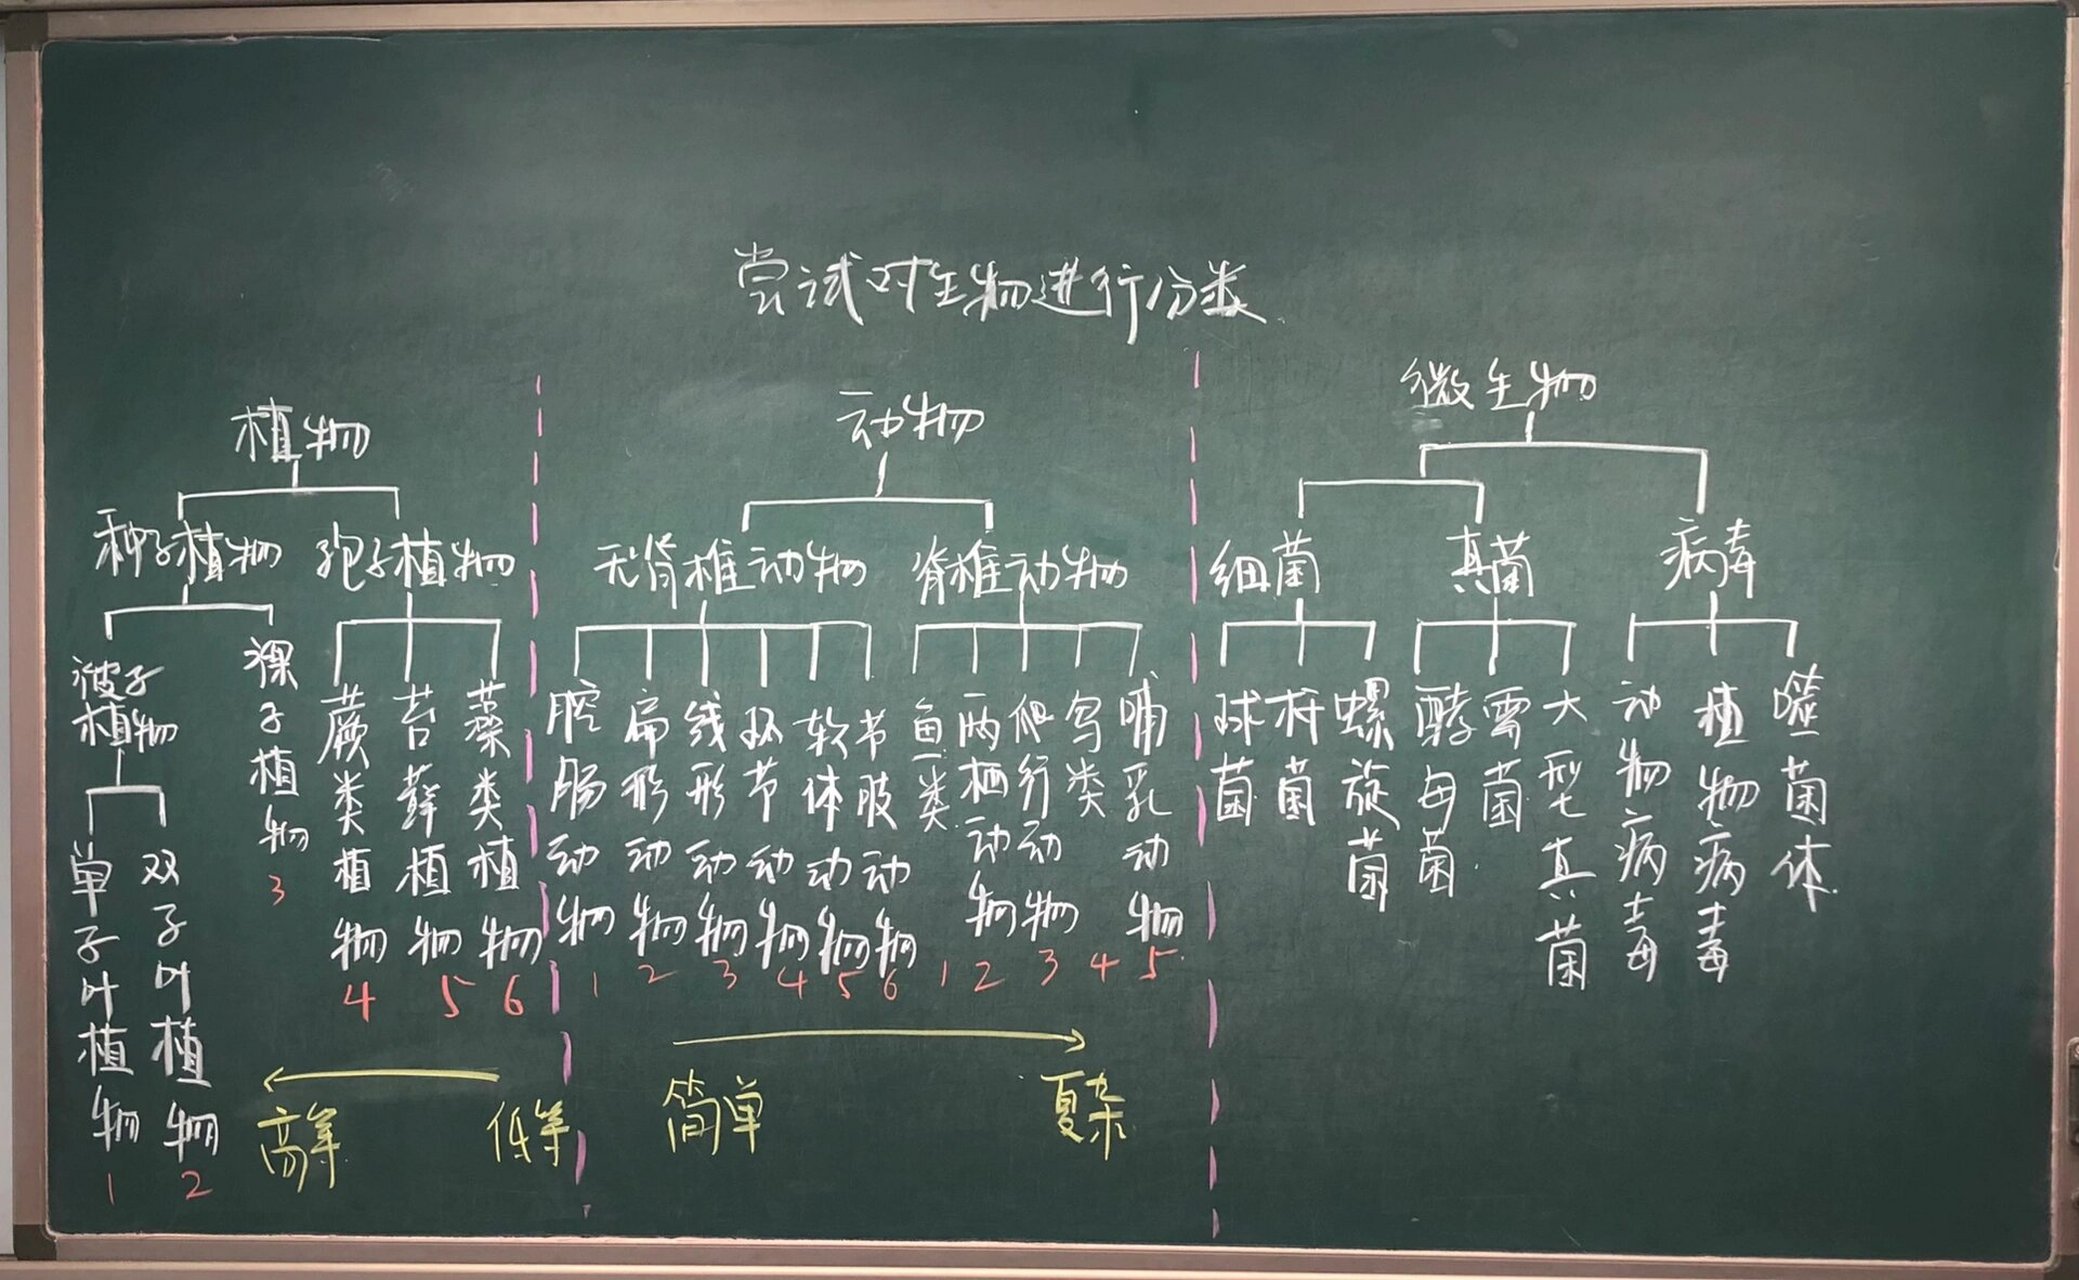 尝试对生物进行分类
植物
种子植物
孢子植物
被子
植物
裸子植物
3
单子叶植物
1
双子叶植物
2
蕨类植物
4
苔藓植物
5
藻类植物
6
高等
低等
动物
无脊椎动物
脊椎动物
腔肠动物
1
扁形动物
2
线形动物
3
环节动物
4
软体动物
5
节肢动物
6
鱼类
1
两栖动物
2
爬行动物
3
鸟类
4
哺乳动物
5
简单
复杂
微生物
细菌
真菌
病毒
球菌
杆菌
螺旋菌
酵母菌
霉菌
大型真菌
动物病毒
植物病毒
噬菌体